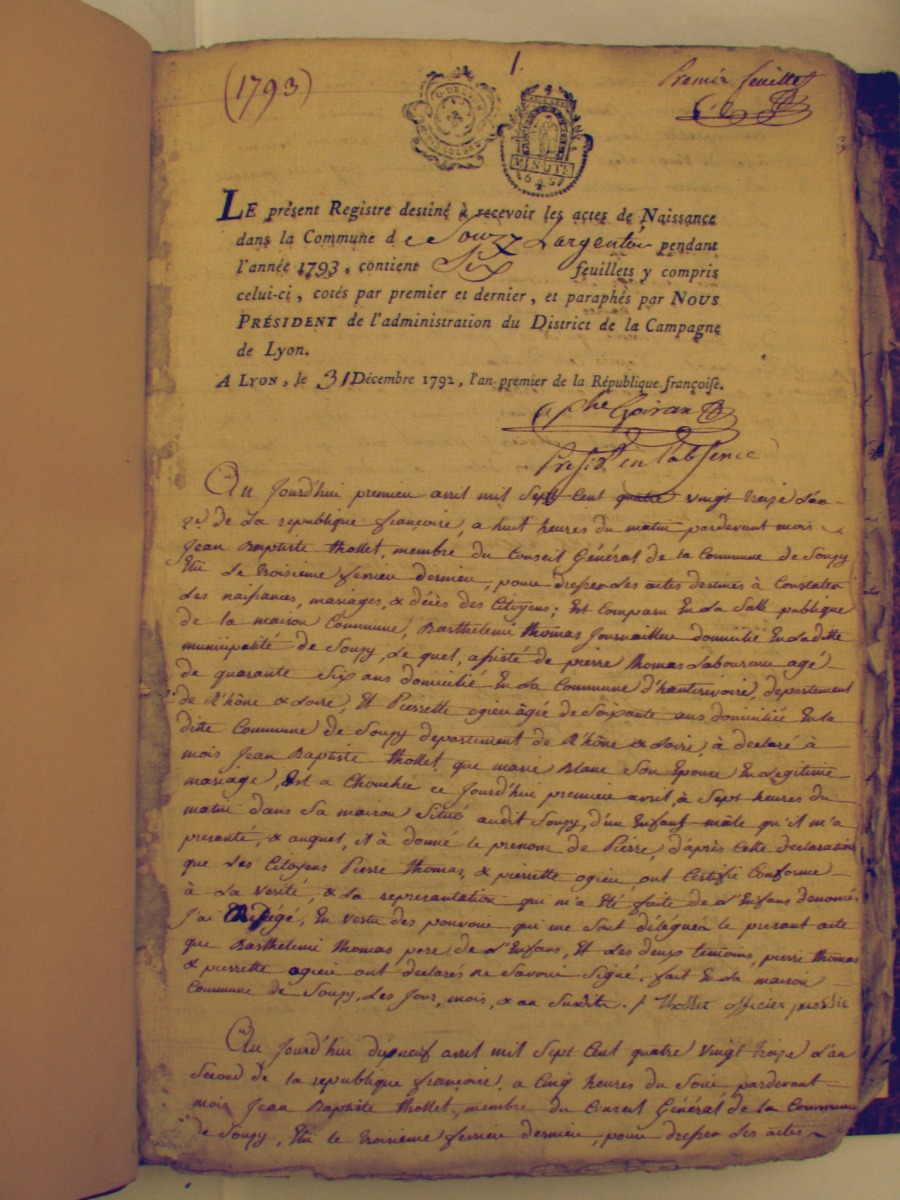 (1793)
1.
Premier feuillet
MINUTE
LE présent Registre destiné à recevoir les actes de Naissance
dans la Commune de Souzy Largentier pendant
l'année 1793, contient Six feuillets y compris
celui-ci, cotés par premier et dernier, et paraphés par NOUS
PRÉSIDENT de l'administration du District de la Campagne
de Lyon.
A LYON, le 31 Décembre 1792, l'an premier de la République françoise.
Presid. en l'absence
Au Jourd'hui premier avril mil Sept Cent quatre vingt treize L'an
2e de La republique françoise, a huit heures du matin pardevant moi
Jean Baptiste thollet, membre du Conseil Général de la Commune de Souzy
Elû Le troisieme ferrier dernier, pour dresser Les actes destinés à Constater
Les naissances, mariages, & décès des Citoyens; Est Comparu En La Salle publique
de la maison Commune, Barthelemi thomas Journaillier domicilié En Laditte
municipalité de Souzy, Le quel, assisté de pierre thomas Laboureur agé
de quarante Six ans domicilié En La Commune d'hauterivoire, departement
de Rhône & Loire, Et Pierrette ogier âgée de Soixante ans domiciliée En La
ditte Commune de Souzy departement de Rhône & Loire, à déclaré à
moi Jean Baptiste thollet, que marie Blanc Son Epouse En Legitime
mariage, Est a Chouchée ce Jourd'hui premier avril, à Sept heures du
matin dans Sa maison Situé audit Souzy, d'un Enfant mâle qu'il m'a
presanté, & auquel, il à donné le prenom de Pierre, d'après Cette declaration
que Les Citoyens Pierre thomas, & pierrette ogier, ont Certifié Conforme
à La verité, & La representation qui m'a Eté faite de L'Enfans denomé,
J'ai Redigé, En vertu des pouvoir qui me Sont délégués le presant acte
que Barthelemi thomas pere de L'Enfans, Et Les deux temoins, pierre thomas
& pierrette ogier ont declarés ne Savoir Signé. fait En La maison
Commune de Souzy, Les Jour, mois, & an Susdits. Thollet officier public
Au Jourd'hui dixneuf avril mil Sept Cent quatre vingt treize L'an
Second de la republique françoise, a Cinq heures du Soir pardevant
moi Jean Baptiste thollet, membre du Conseil Général de la Commune
de Souzy, Elû le troisieme ferrier dernier, pour dresser Les actes